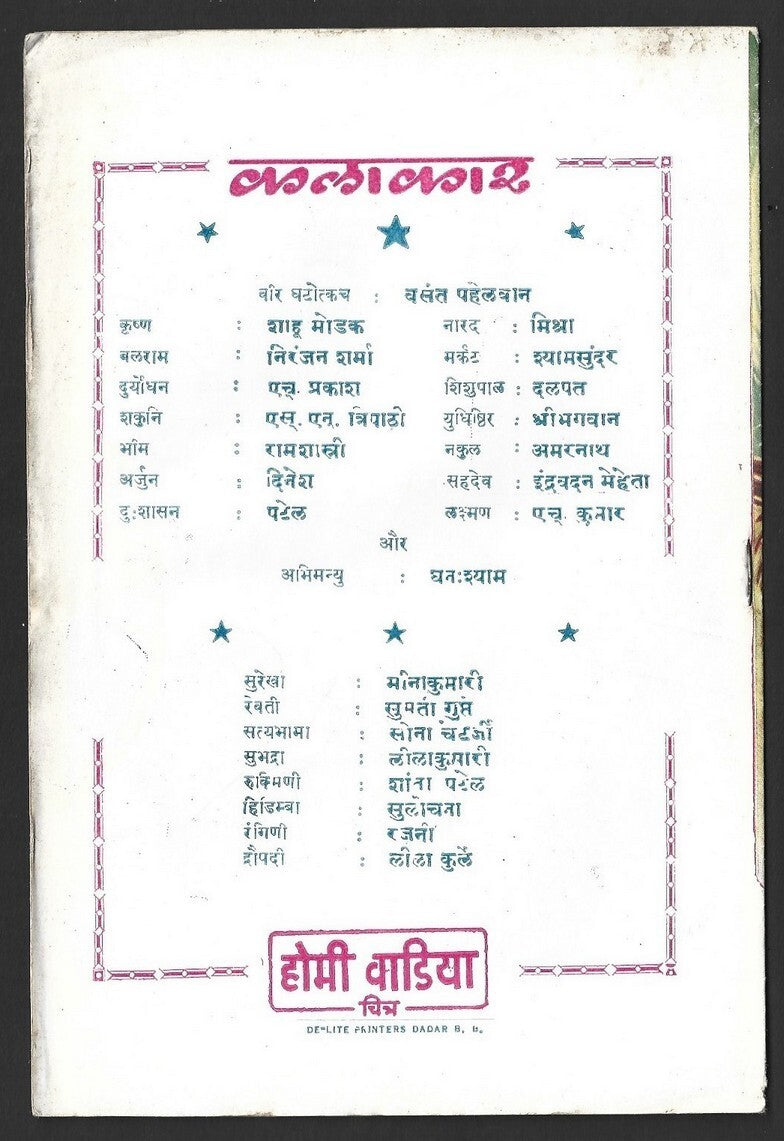 कलाकार
वीर घटोत्कच : वसंत पहेलवान
कृष्ण : शाहू मोडक नारद : मिश्रा
बलराम : निरंजन शर्मा मर्कट : श्यामसुंदर
दुर्योधन : एच्. प्रकाश शिशुपाळ : दलपत
शकुनि : एस्. एन्. त्रिपाठी युधिष्ठिर : श्रीभगवान
भीम : रामशास्त्री नकुल : अमरनाथ
अर्जुन : दिनेश सहदेव : इंद्रवदन मेहेता
दुःशासन : पटेल लक्ष्मण : एच् कुमार
और
अभिमन्यु : घनःश्याम
सुरेखा : मीनाकुमारी
रेवती : सुमती गुप्ते
सत्यभामा : सोना चटर्जी
सुभद्रा : लीलाकुमारी
रुक्मिणी : शांता पटेल
हिडिम्बा : सुलोचना
रंगिणी : रजनी
द्रौपदी : लीला कुर्ले
होमी वाडिया
चित्र
DE-LITE PRINTERS DADAR B. B.